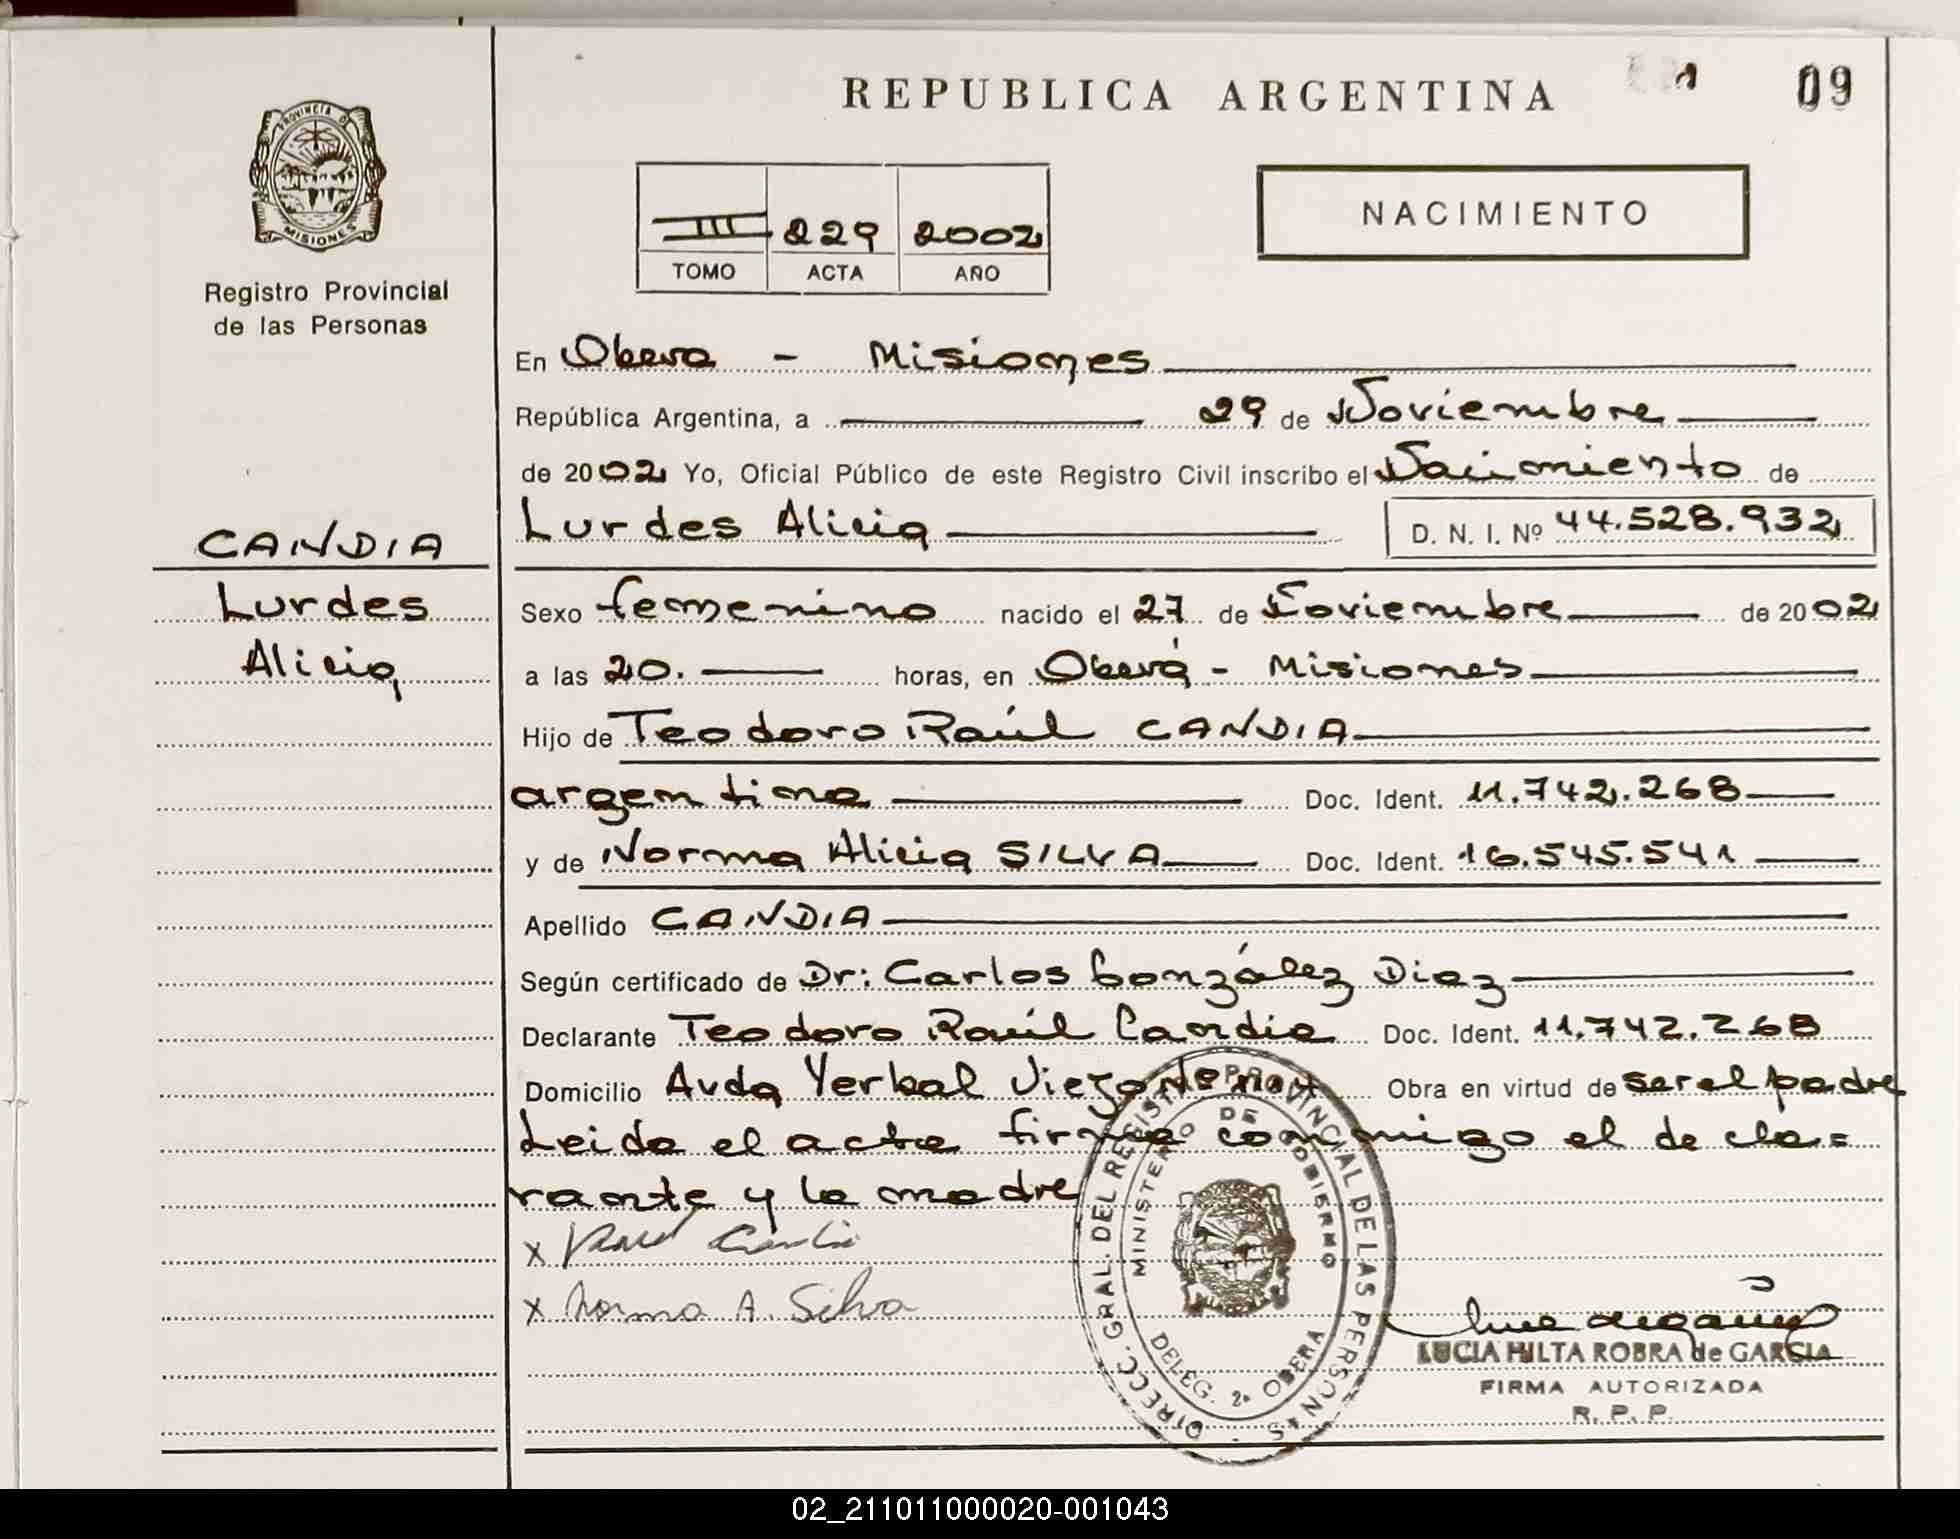 REPUBLICA ARGENTINA
09
PROVINCIA DE
MISIONES
Registro Provincial
de las Personas
III 229 2002
TOMO ACTA AÑO
NACIMIENTO
En Obera - Misiones
República Argentina, a 29 de Noviembre
de 2002 Yo, Oficial Público de este Registro Civil inscribo el Nacimiento de
Lurdes Alicia D. N. I. Nº 44.528.932
CANDIA
Lurdes
Alicia
Sexo femenino nacido el 27 de Noviembre de 2002
a las 20. horas, en Oberá - Misiones
Hijo de Teodoro Raúl CANDIA
argentino Doc. Ident. 11.742.268
y de Norma Alicia SILVA Doc. Ident. 16.545.541
Apellido CANDIA
Según certificado de Dr: Carlos González Diaz
Declarante Teodoro Raúl Candia Doc. Ident. 11.742.268
Domicilio Avda Yerbal Viejo Obra en virtud de ser el padre
Leida el acta firma conmigo el decla=
rante y la madre
x Raul Candia
x Norma A. Silva
DIRECC. GRAL. DEL REGISTRO PROVINCIAL DE LAS PERSONAS
MINISTERIO DE GOBIERNO
DELEG. 2ª OBERA
LUCIA HILTA ROBRA de GARCIA
FIRMA AUTORIZADA
R. P. P.
02_211011000020-001043